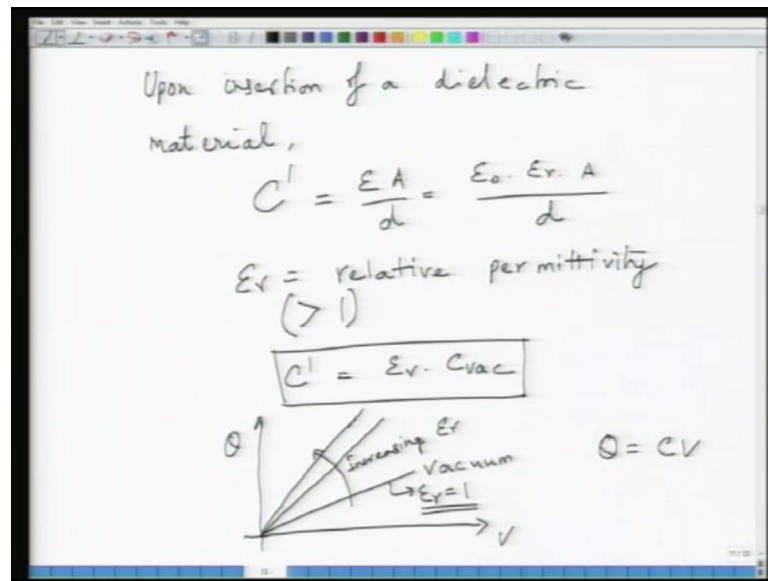 File Edit View Insert Actions Tools Help
Upon insertion of a dielectric
material,
C' = εA/d = ε₀ . εr . A/d
εr = relative permittivity
(> 1)
C' = εr . Cvac
Q
increasing εr
vacuum
↳ εr = 1
V
Q = CV